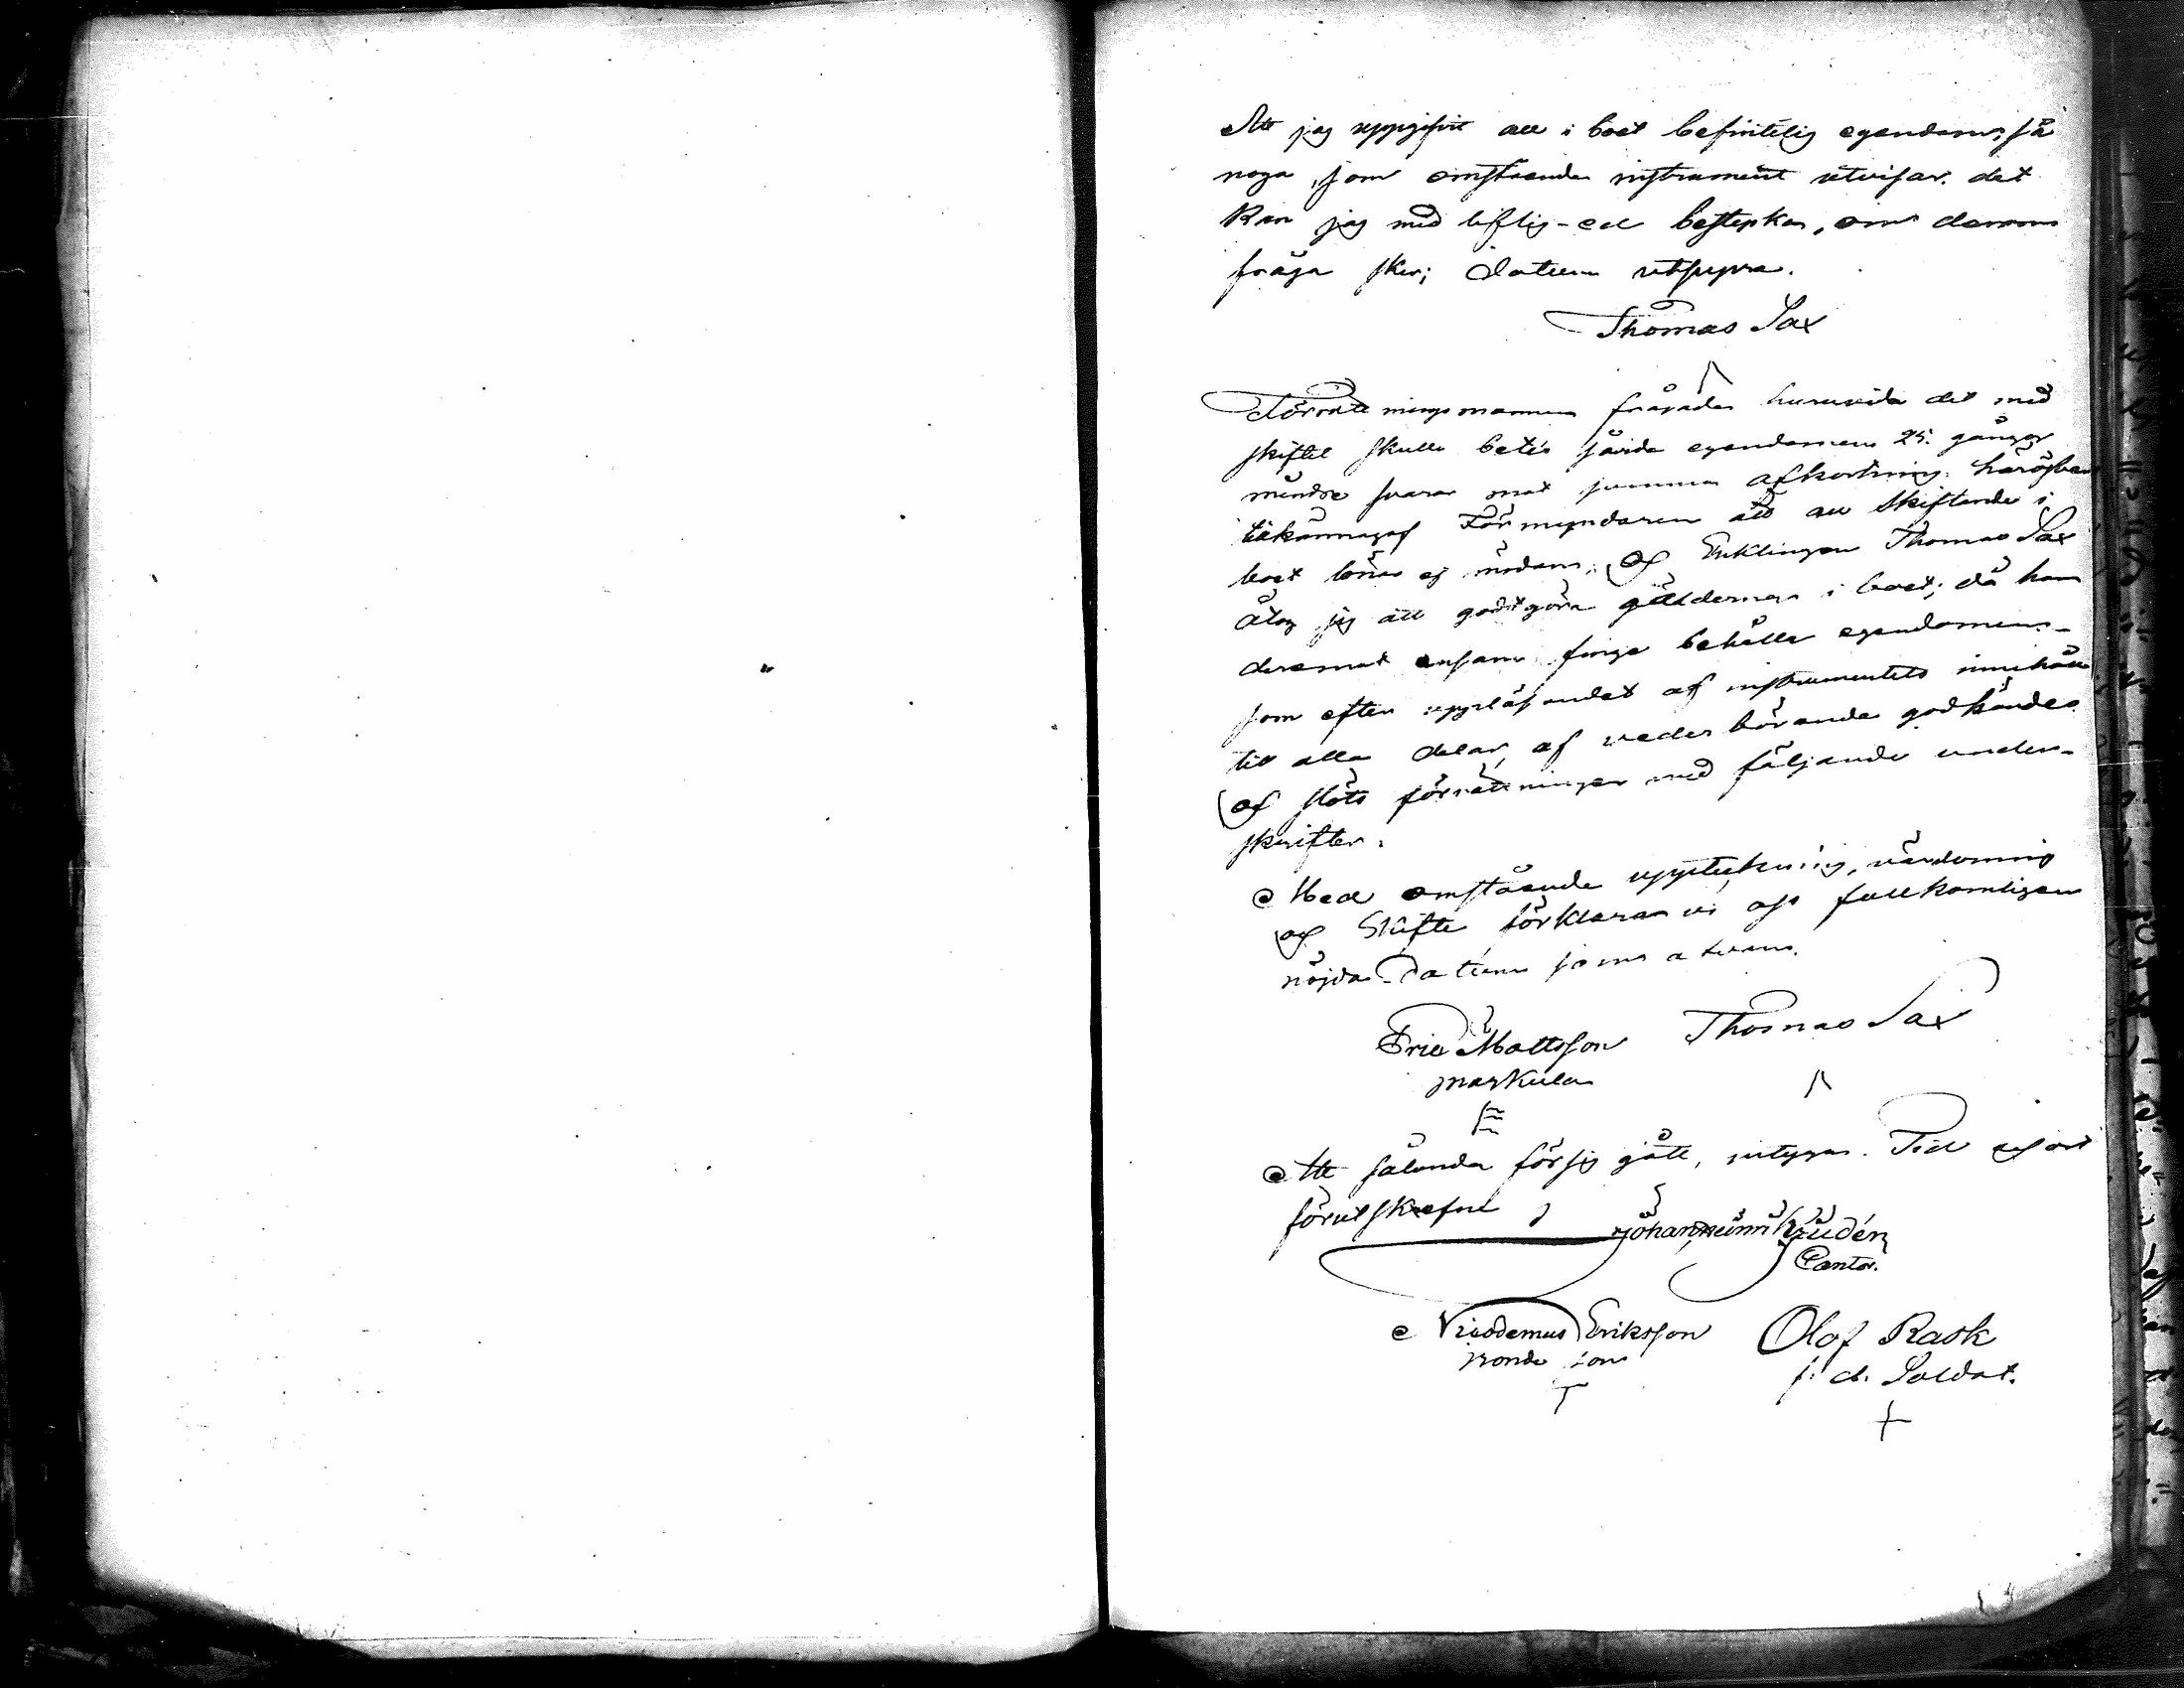 Att jag uppgifvit all i boet befintelig egendom, så
noga, som omstående instrument utvisar, det
Kan jag med liflig-ed bestyrka, om derom
fråga sker; datum utsupra.
Thomas Sax
Förrättningsmannen frågade huruvida det med
skiftet skulle
mindre svarar mot summan afkortning.
tilkännagaf Förmyndaren att all Skiftande i
boet löner ej mödans; Og Enklingen Thomas Sax
åtog sig att godtgöra gälldernas i boet; då han
deremot ensam finge behålla egendomen-
som efter uppläsandet af instrumentets innehåll
till alla delar, af vederbörande godkändes
og slöts förrättningen med följande under-
skrifter.
Med omstående uppteckning, värdering
og Skifte förklarar vi oss fullkomligen
nöjda. Datum som ofvan.
Eric Mattsson Thomas Sax
Maskula
Att sålunda försig gått, intygar. Tid og ort
förutskrefne
Cantor.
Nicodemus Eriksson Olof Rask
Bonde son f. d. Soldat.